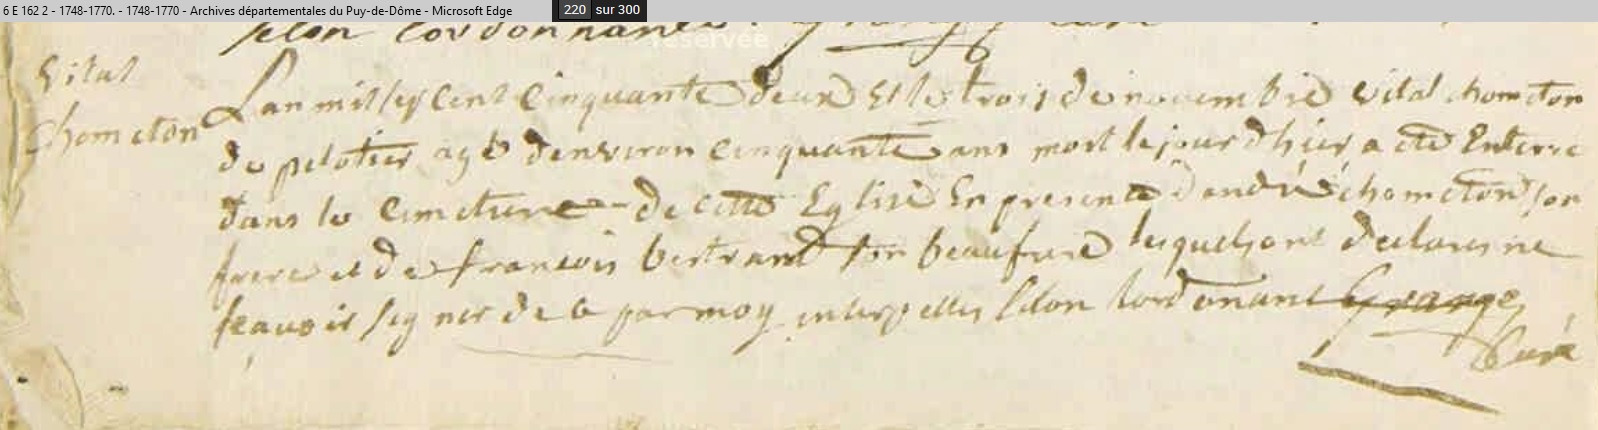 6 E 162 2 - 1748-1770. - 1748-1770 - Archives départementales du Puy-de-Dôme - Microsoft Edge
220 sur 300
selon lordonnance
réservée
Vital
Chomcton
Lan mil sept Cent Cinquante deux Et le trois de novembre vital chomcton
de pelotier agé denviron Cinquante ans mort le jour dhier a eté Enterré
dans le Cimetiere de cette Eglise En presence dandré chomcton son
frere et de francois bertrand son beaufrere lesquels ont declares ne
scavoir signer de ce par moy interpelles selon lordonance Grange
Curé